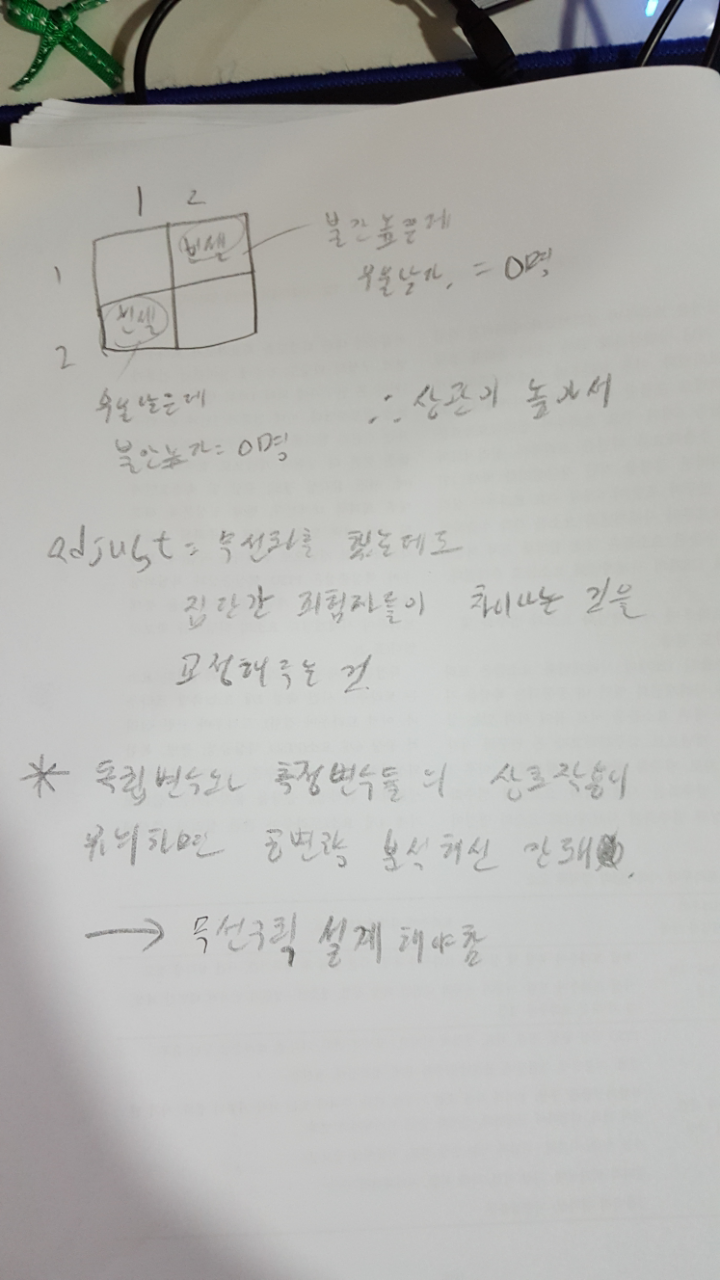 1 2
1
빈셀
불안높은데
우울낮자. = 0명
빈셀
2
우울낮은데
불안높자 = 0명
∴ 상관이 높아서
adjust = 무선화를 했는데도
집단간 피험자들이 차이나는 것을
교정해주는 것.
* 독립변수와 측정변수들의 상호작용이
유의하면 공변량 분석해선 안돼.
→ 무선구획 설계 해야함